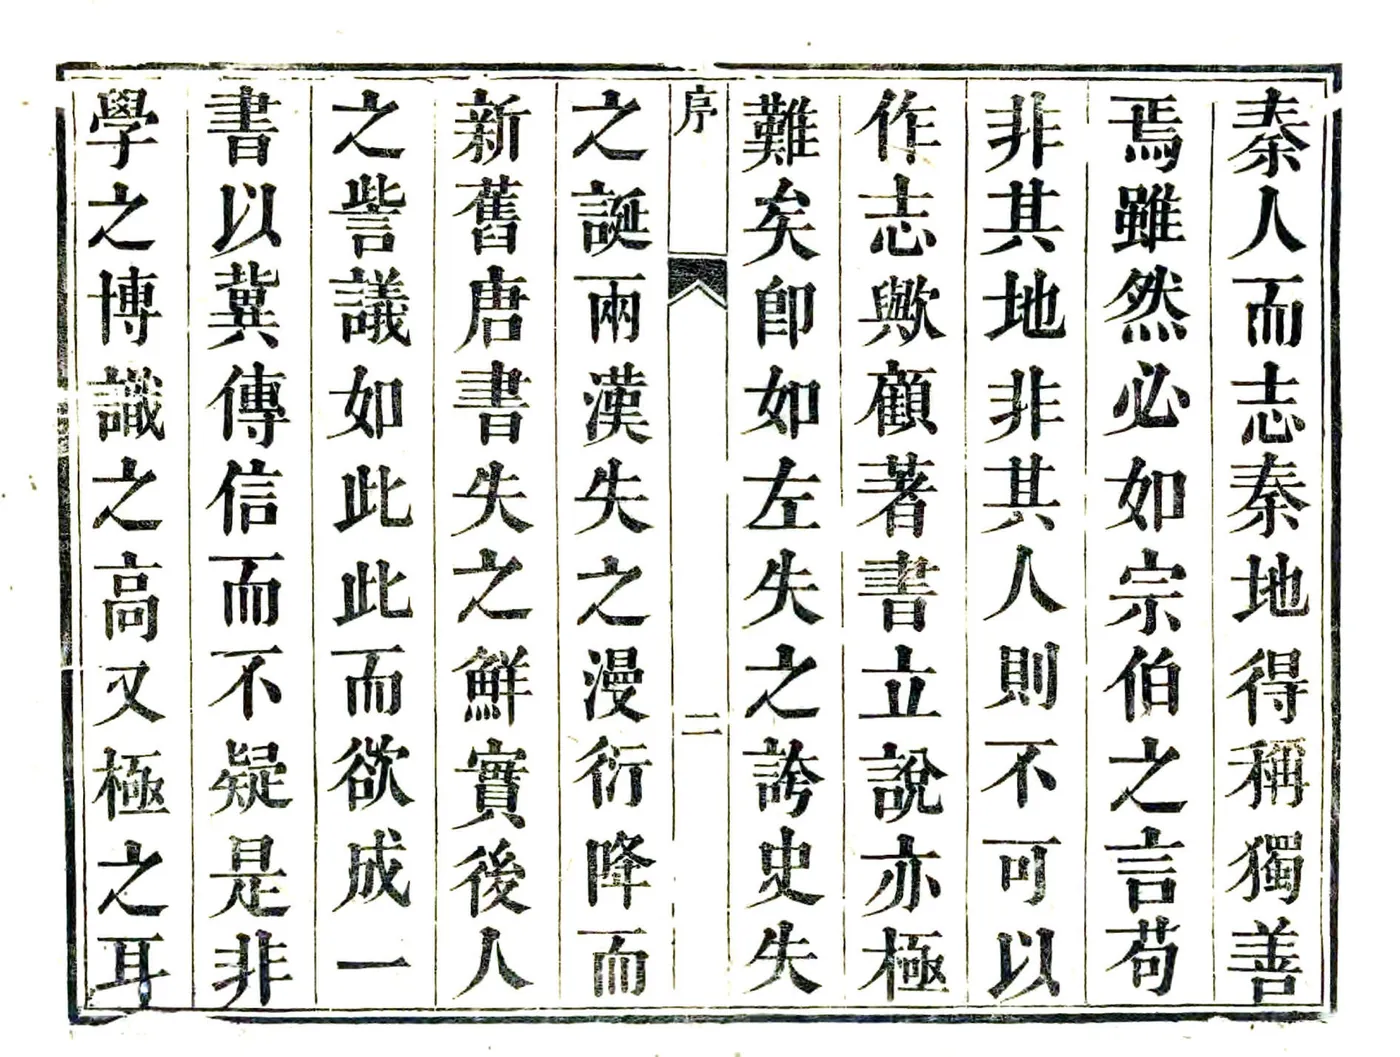 秦人而志秦地得稱獨善
焉雖然必如宗伯之言苟
非其地非其人則不可以
作志歟顧著書立說亦極
難矣卽如左失之誇史失
序
二
之誕兩漢失之漫衍降而
新舊唐書失之鮮實後人
之訾議如此此而欲成一
書以冀傳信而不疑是非
學之博識之高又極之耳